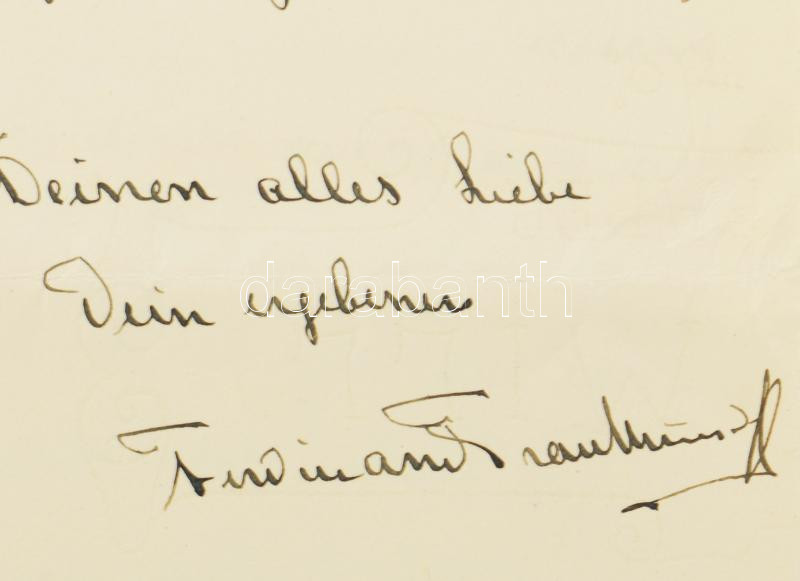 Deinen alles Liebe
Dein ergebener
darabanth
Ferdinand